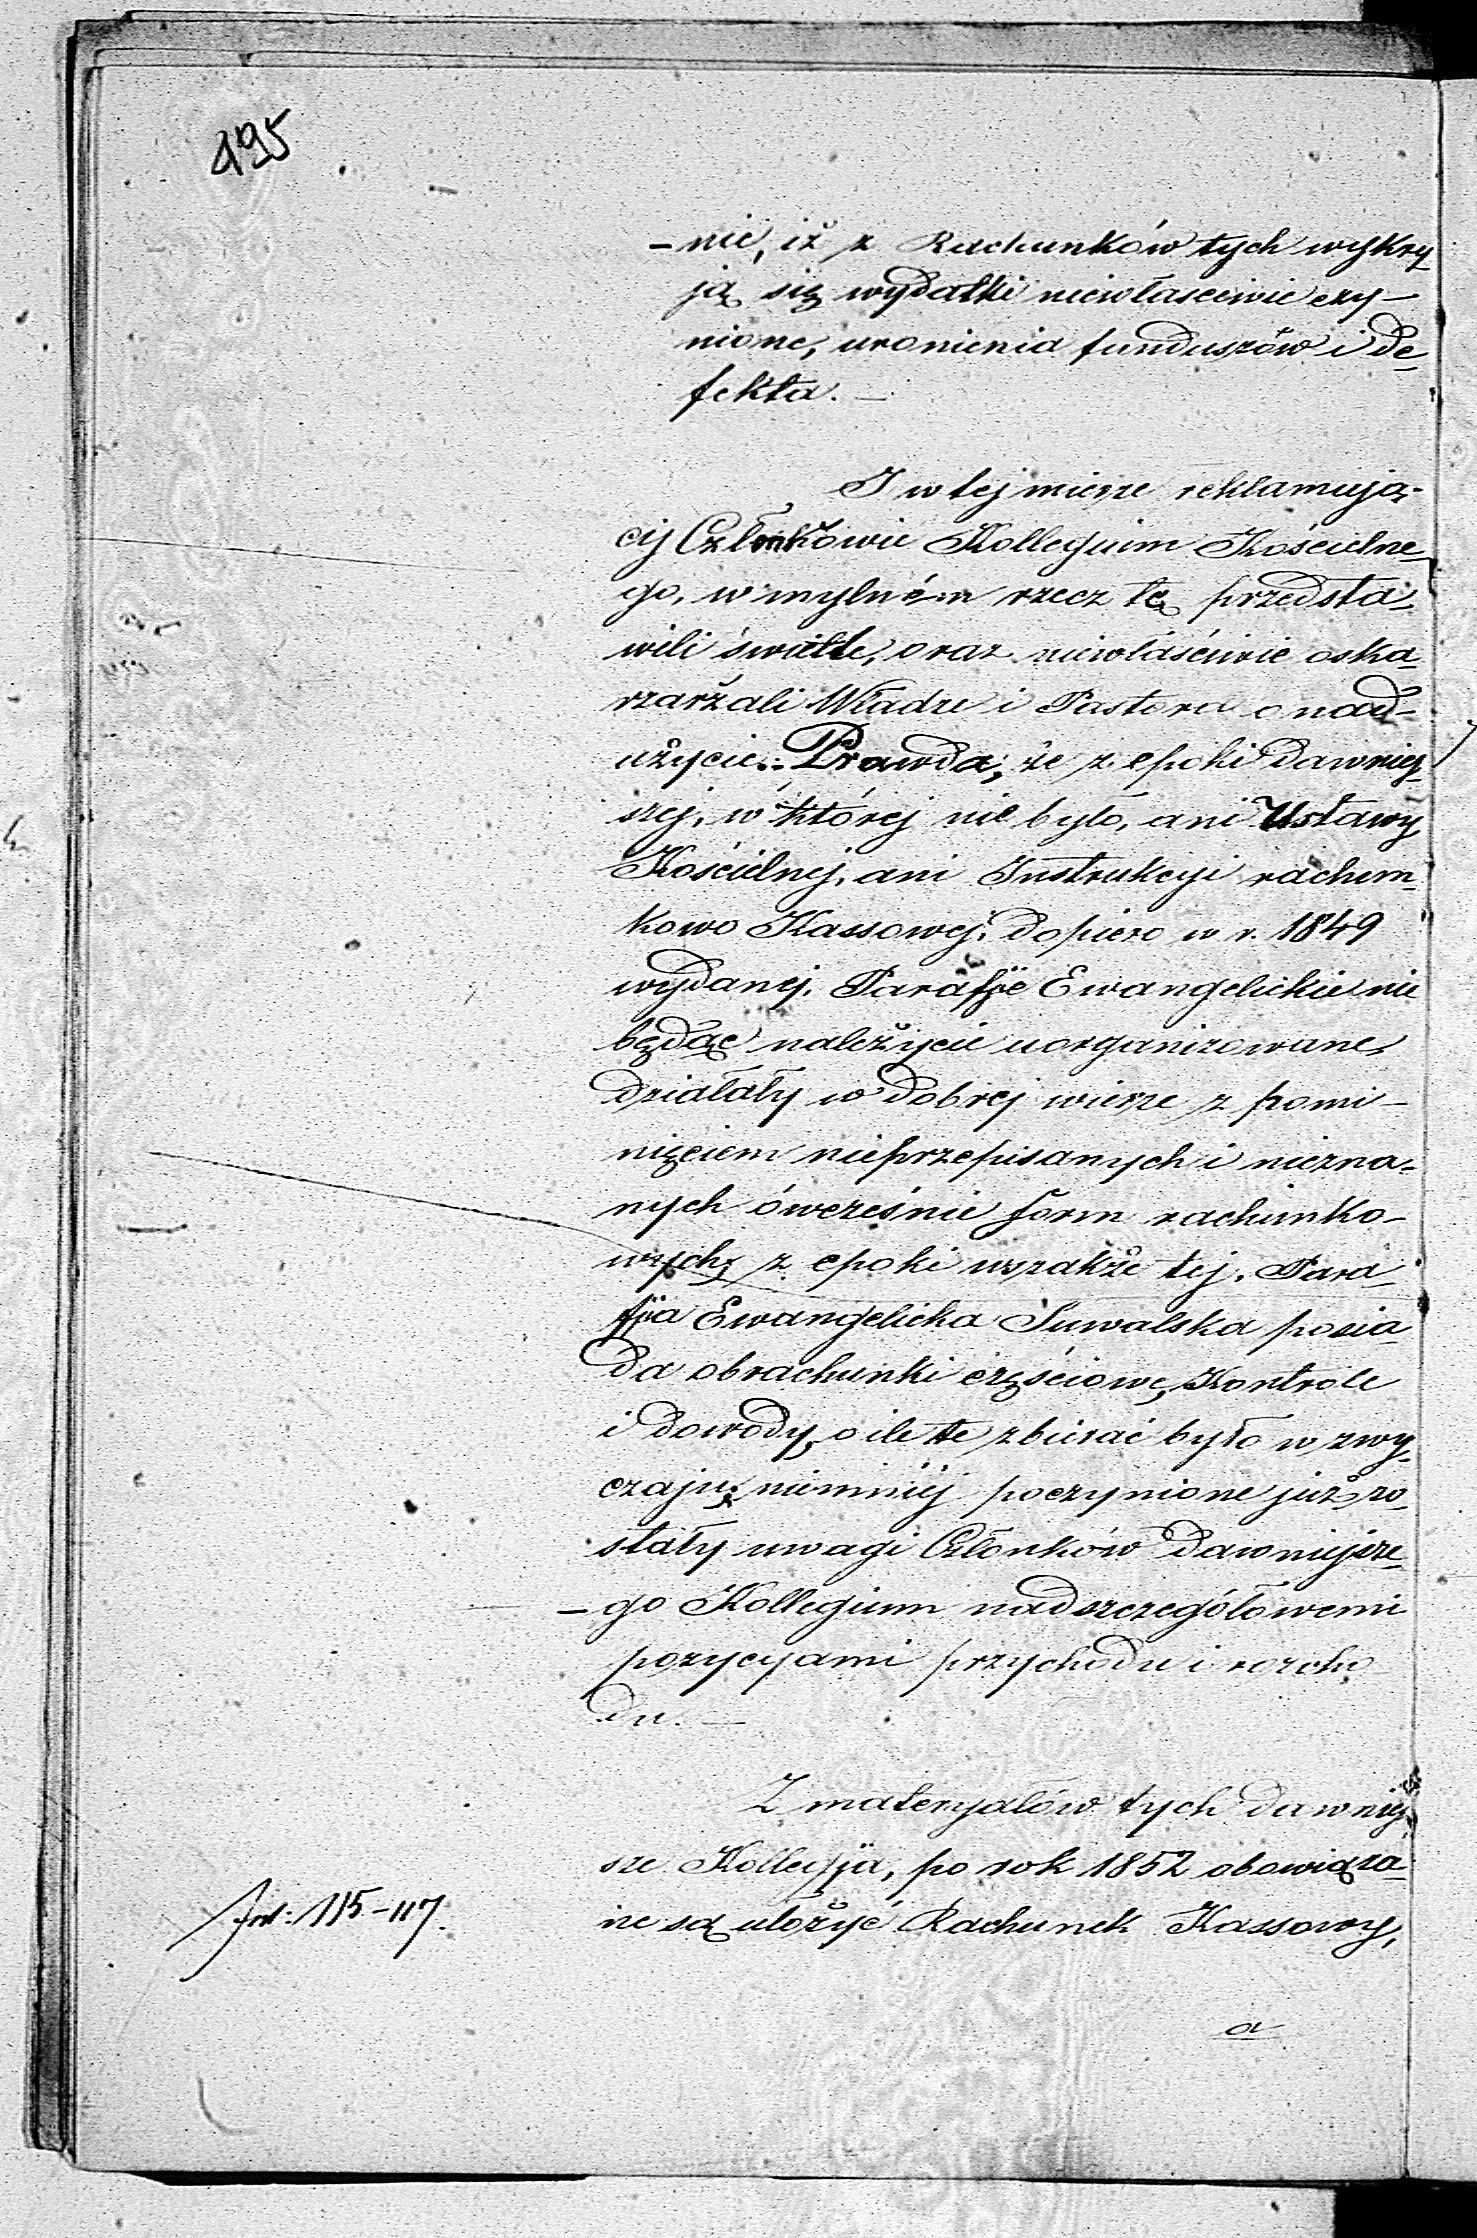 495
-nie, iż z Rachunków tych wykry
ją się wydatki niewłaściwie czy-
nione, uronienia funduszów i de-
fekta. -
I w tej mierze reklamują-
cij Członkowie Kollegium Kościelne-
go, w mylném rzecz tę przedsta-
wili świetle, oraz niewłaściwie oska-
rzarżali Władze i Pastora o nad-
użycie. Prawda, że z epoki dawniej-
szej, w której nie było, ani Ustawy
Kościelnej, ani Instrukcyi rachun-
kowo Kassowej, dopiero w r. 1849
wydanej. Parafije Ewangelickie nie
będąc należycie uorganizowane,
działały w dobrej wierze z pomi-
nięciem nieprzepisanych i niezna-
nych ówcześnie form rachunko-
wych; z epoki wszakże tej, Para-
fija Ewangelicka Suwalska posia-
da obrachunki częściowe, Kontrole
i dowody, o ile te zbierać było w zwy-
czaju; niemniéj poczynione już zo-
stały uwagi Członków dawniejsze-
-go Kollegium nad szczegółowemi
pozycyami przychodu i rozcho
du. -
Z materyałów tych dawniej-
sze Kollegija, po rok 1852 obowiąza-
ne są ułożyć Rachunek Kassowy,
115-117.
a